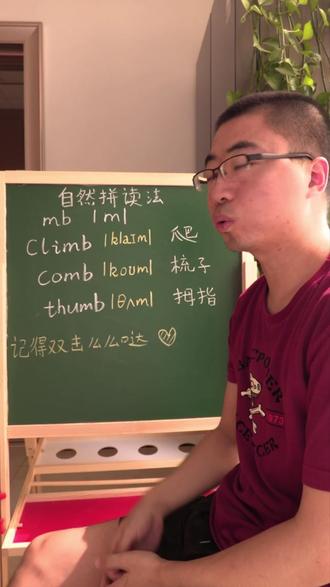 自然拼读法
mb |m|
Climb |klaɪm| 爬
Comb |koʊm| 梳子
thumb |θʌm| 拇指
记得双击么么哒